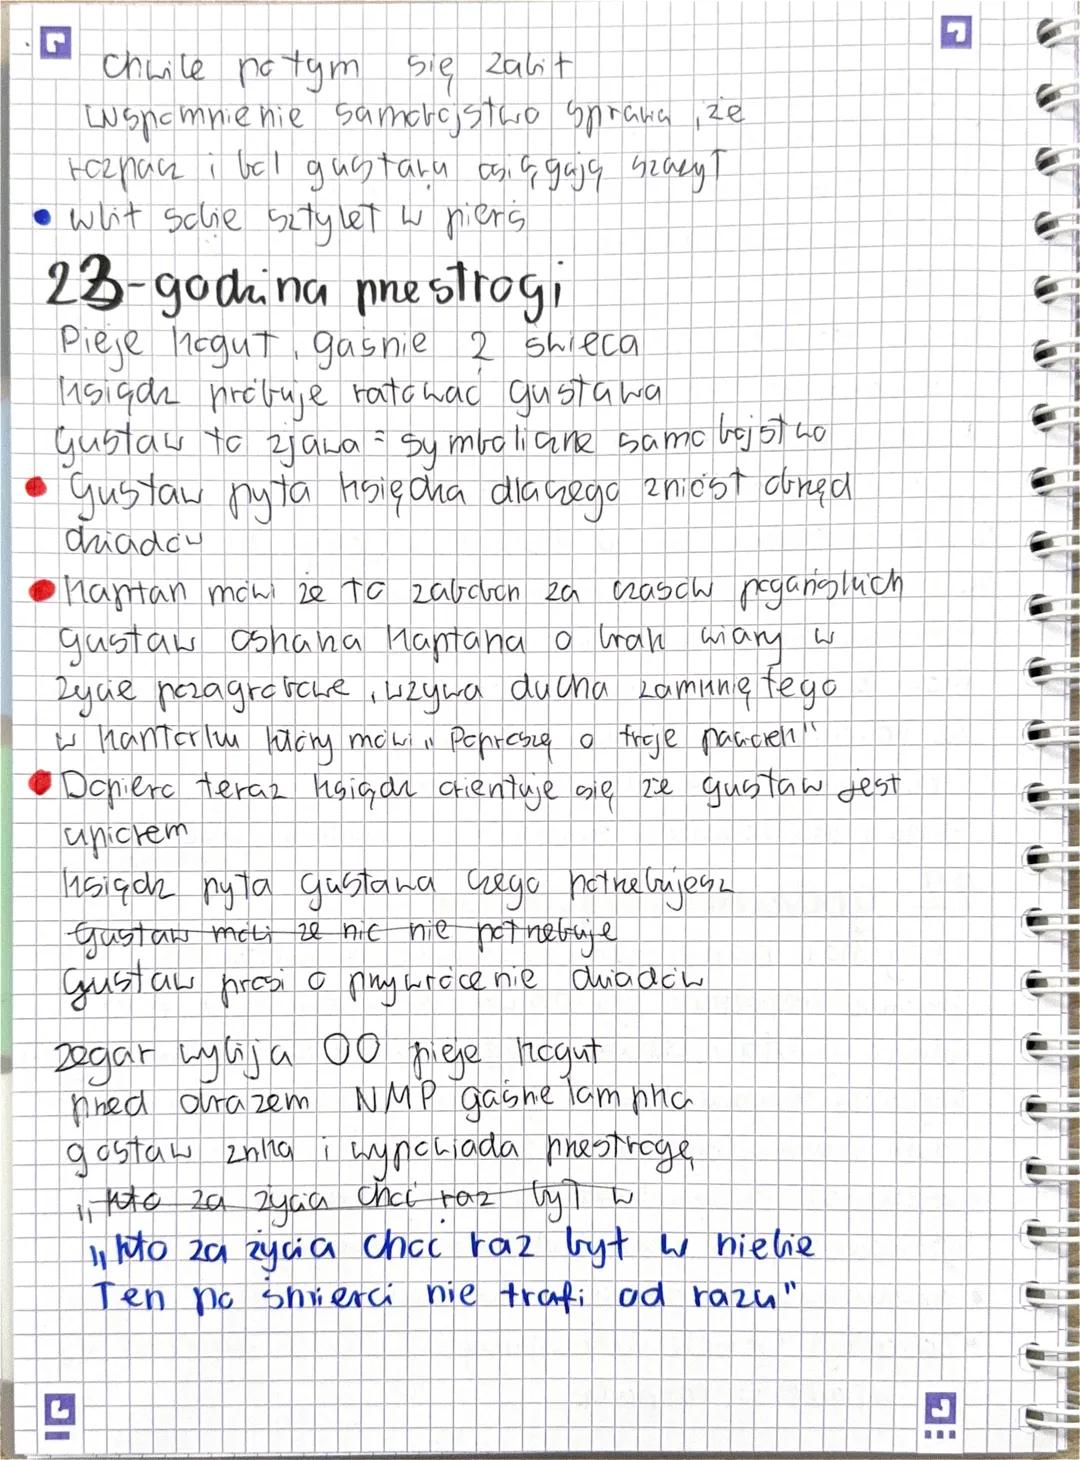 Chwile po tym się zabił
Wspomnienie samobójstwo sprawia, że
rozpacz i ból gustawa osiągają szczyt
• wbił sobie sztylet w pierś
23-godzina przestrogi
Pieje kogut, gaśnie 2 świeca
ksiądz próbuje ratować gustawa
gustaw to zjawa = symboliczne samobójstwo
• Gustaw pyta księdza dlaczego zniósł obrzęd
dziadów
• Kapłan mówi że to zabobon za czasów pogańskich
gustaw oskarża kapłana o brak wiary w
życie pozagrobowe, wzywa ducha zamkniętego
w kantorku który mówi „Poproszę o troje pacierzy"
• Dopiero teraz ksiądz orientuje się że gustaw jest
upiorem
ksiądz pyta gustawa czego potrzebujesz
gustaw mówi że nic nie potrzebuje
gustaw prosi o przywrócenie dziadów
zegar wybija 00 pieje kogut
przed obrazem NMP gaśnie lampka
gostaw znika i wypowiada przestrogę
„kto za życia choć raz był w
„kto za życia choć raz był w niebie
Ten po śmierci nie trafi od razu"